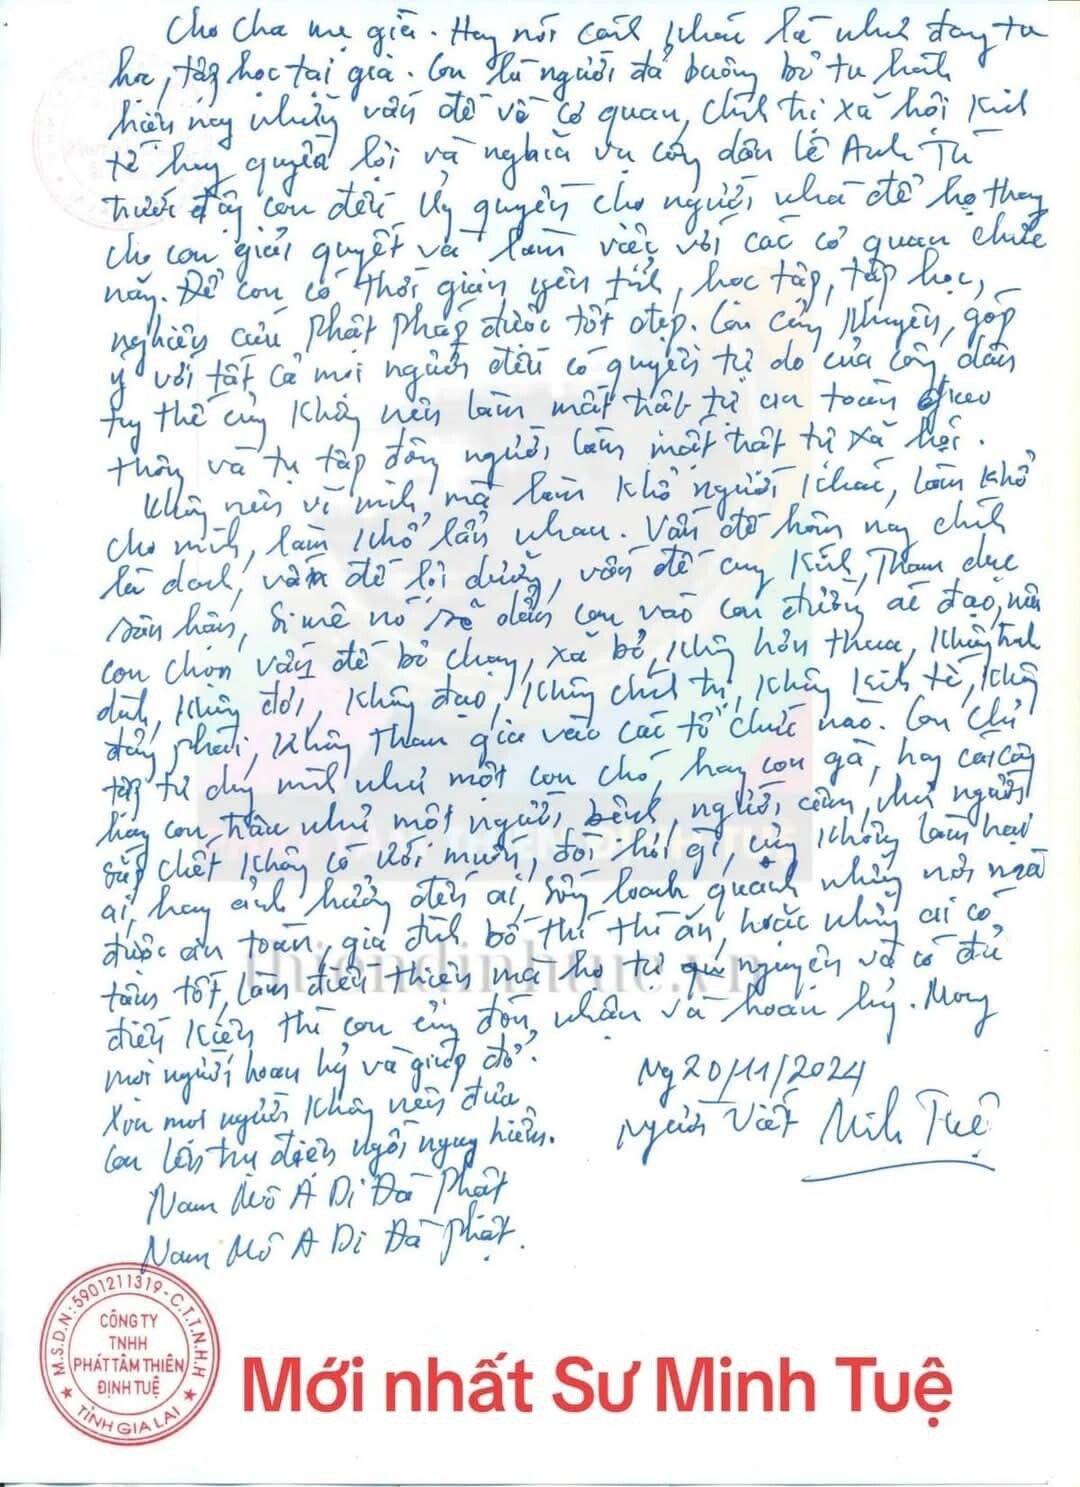 cho cha mẹ già. Hay nói cách khác là như đang tu
học, tập học tại gia. Con là người đã buông bỏ tu hành
hiện nay những vấn đề về cơ quan, chính trị xã hội kinh
tế hay quyền lợi và nghĩa vụ công dân Lê Anh Tú
trước đây con đều ủy quyền cho người nhà để họ thay
cho con giải quyết và làm việc với các cơ quan chức
năng. Để con có thời gian yên tĩnh, học tập, tập học,
nghiên cứu Phật Pháp được tốt đẹp. Con cũng khuyên, góp
ý với tất cả mọi người đều có quyền tự do của công dân
tuy thế cũng không nên làm mất trật tự an toàn giao
thông và tụ tập đông người làm mất trật tự xã hội.
Không nên vì mình mà làm khổ người khác, làm khổ
cho mình, làm khổ lẫn nhau. Vấn đề hôm nay chính
là danh, vấn đề lợi dưỡng, vấn đề cung kính, Tham dục
sân hận, si mê nó sẽ dẫn con vào con đường ác đạo, nên
con chọn vấn đề bỏ chạy, xả bỏ, không hơn thua, không tranh
dành, không đời, không đạo, không chính trị, không kinh tế, không
đảng phái, không tham gia vào các tổ chức nào. Con chỉ
tập tư duy mình như một con chó, hay con gà, hay cái cây
hay con trâu như một người bệnh, người câm, như người
sắp chết không có với muốn, đòi hỏi gì, cũng không làm hại
ai, hay ảnh hưởng đến ai, sống loanh quanh những nơi mà
được an toàn, gia đình bố thí thì ăn, hoặc những ai có
tâm tốt, làm điều thiện mà họ tự nguyện và có đủ
điều kiện thì con cũng đón nhận và hoan hỷ. Mong
mọi người hoan hỷ và giúp đỡ.
Xin mọi người không nên đưa
con lên trụ điện ngồi nguy hiểm.
Nam Mô A Di Đà Phật
Nam Mô A Di Đà Phật.
Ng 20/11/2024
Người Viết Minh Tuệ
thiendinhtue.vn
M.S.D.N: 5901211319 - C.T.T.N.H.H
CÔNG TY
TNHH
PHÁT TÂM THIỀN
ĐỊNH TUỆ
TỈNH GIA LAI
Mới nhất Sư Minh Tuệ